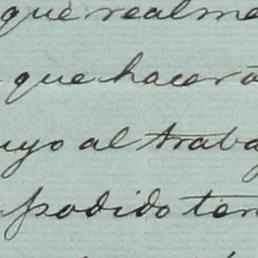 que realme
que hacer a
uyo al traba
podido ten